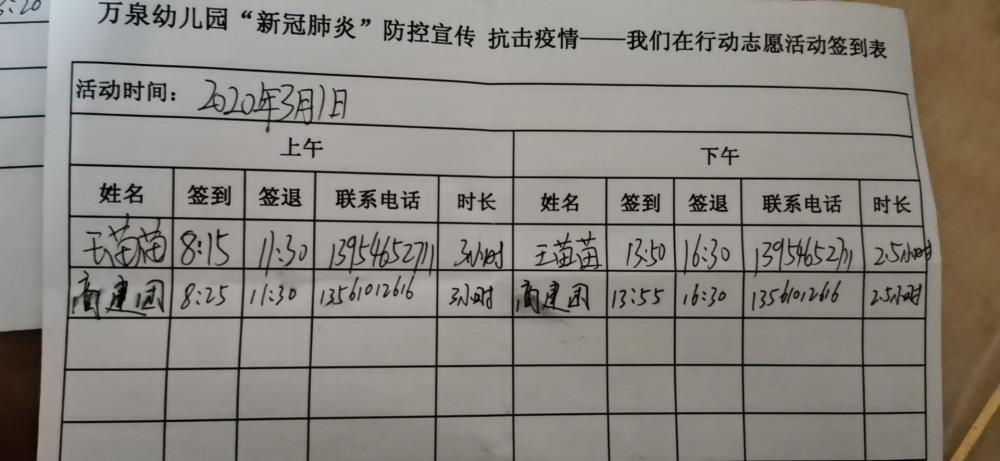 8:20
万泉幼儿园“新冠肺炎”防控宣传 抗击疫情——我们在行动志愿活动签到表
活动时间： 2020年3月1日
上午 下午
姓名 签到 签退 联系电话 时长 姓名 签到 签退 联系电话 时长
王苗苗 8:15 11:30 13954652711 3小时 王苗苗 13:50 16:30 13954652711 2.5小时
高建国 8:25 11:30 13561012616 3小时 高建国 13:55 16:30 13561012616 2.5小时